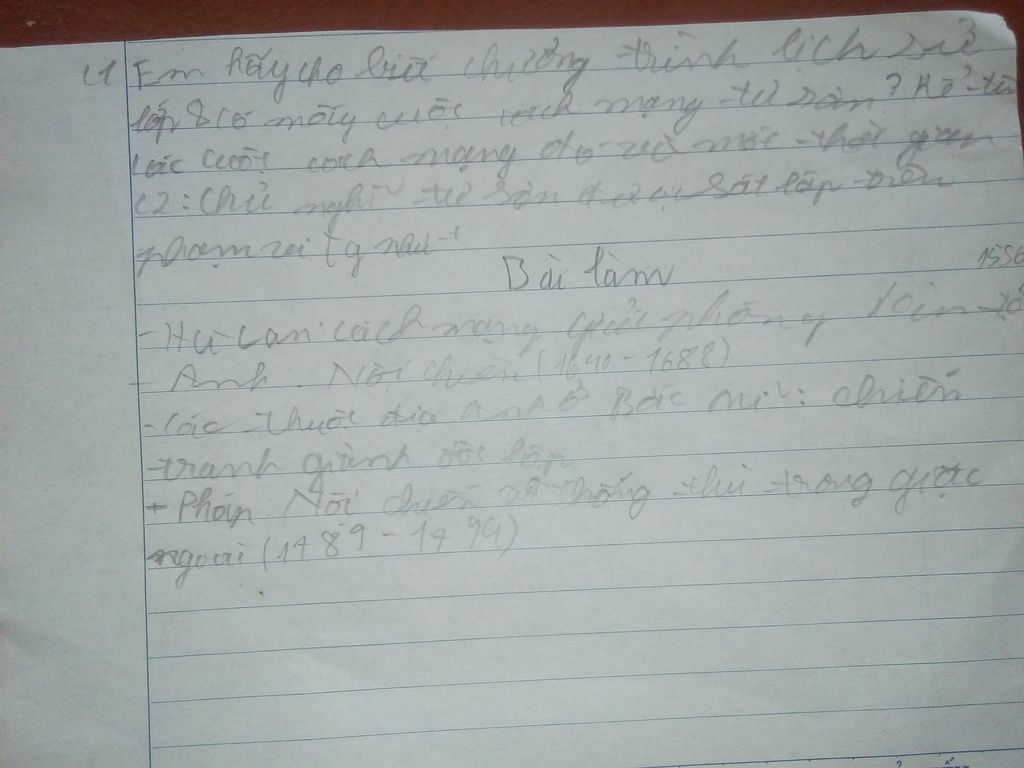 C1 Em hãy cho biết chương trình lịch sử
lớp 8 có mấy cuộc cách mạng tư sản? Kể tên
các cuộc cách mạng đó và mốc thời gian
C2: Chủ nghĩ tư sản được lập trên
phạm vi
Bài làm
1556
- Hà Lan: cách mạng giải phóng
- Anh. Nội chiến (1640 - 1688)
- Các thuộc địa Anh ở Bắc mĩ: chiến
tranh giành độc lập
+ Pháp Nội chiến và chống thù trong giặc
ngoài (1789 - 1794)